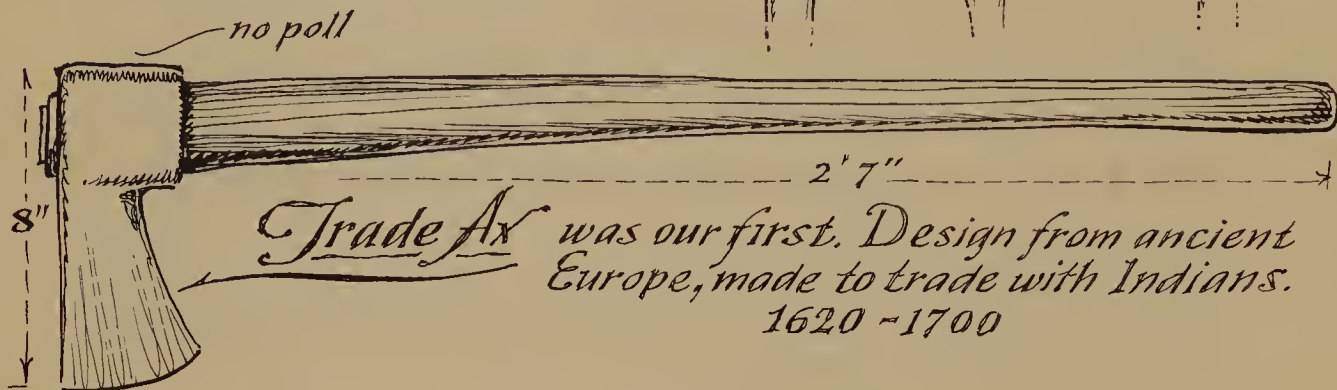 no poll
8"
2' 7"
Trade Ax was our first. Design from ancient
Europe, made to trade with Indians.
1620 - 1700